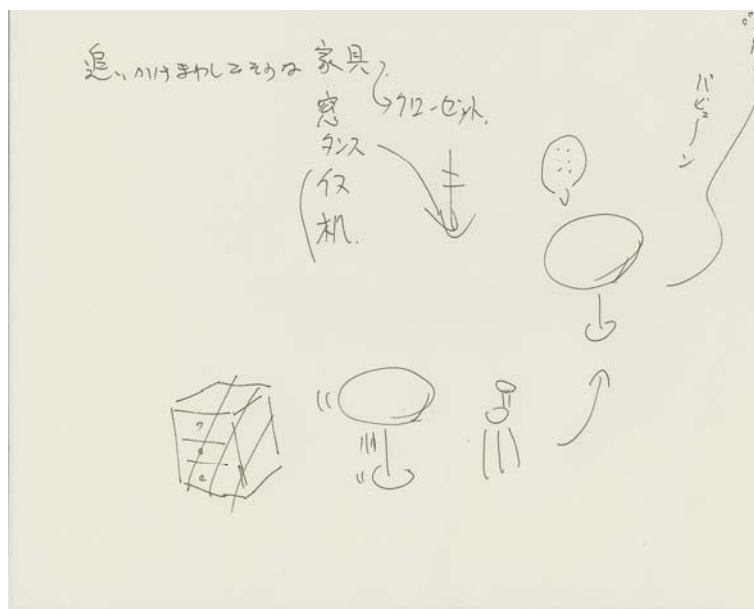 追いかけまわしてそうな家具
→クローゼット
窓
タンス
イス
机
バビューン